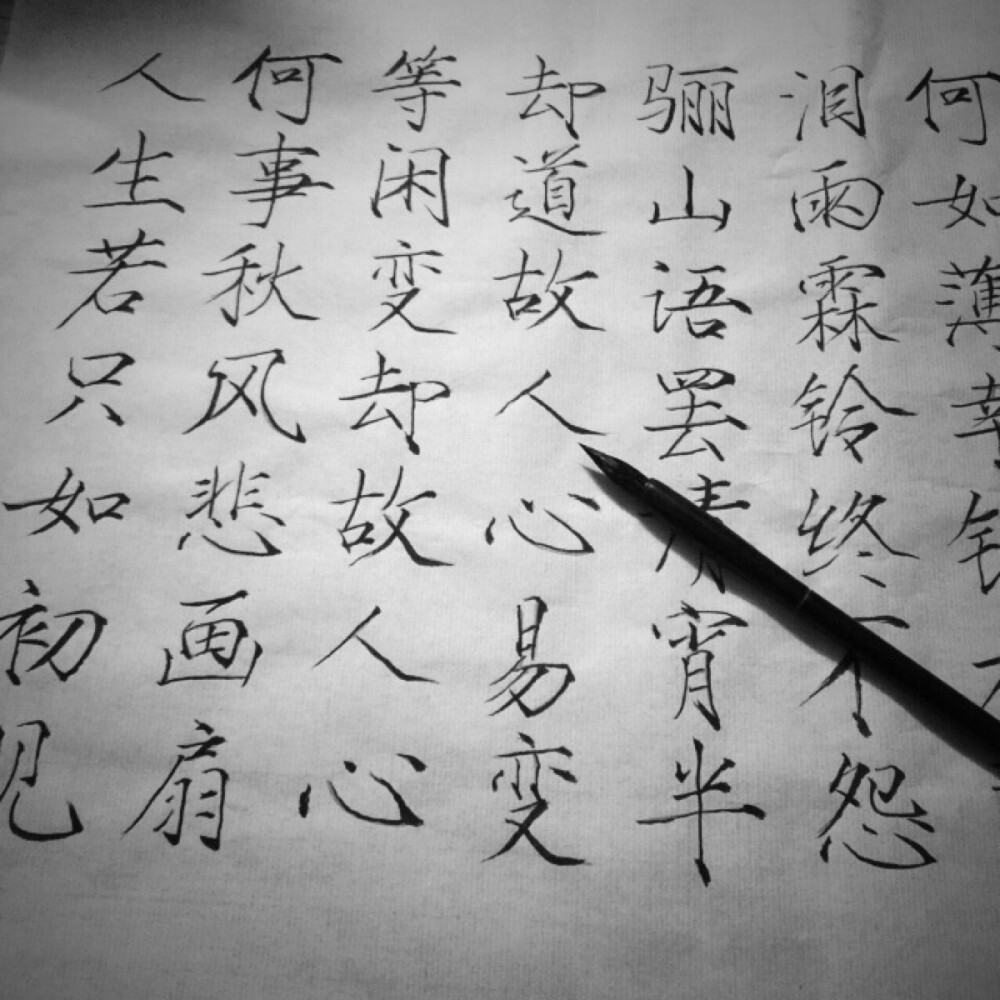 人生若只如初见
何事秋风悲画扇
等闲变却故人心
却道故人心易变
骊山语罢清宵半
泪雨霖铃终不怨
何如薄幸